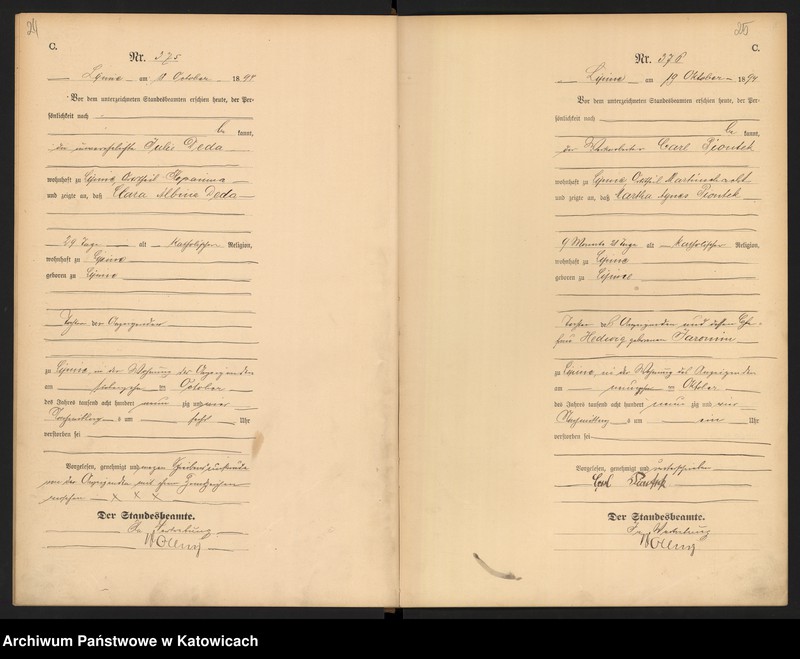 24
C.
Nr. 375
Lipine am October 1894
Vor dem unterzeichneten Standesbeamten erschien heute, der Per-
sönlichkeit nach
be kannt,
die unverehelichte Julie Deda
wohnhaft zu Lipine, Ortstheil
und zeigte an, daß Clara Albine Deda
29 Tage alt katholischer Religion,
wohnhaft zu Lipine
geboren zu Lipine
Tochter der Anzeigenden
zu Lipine, in der Wohnung der Anzeigenden
am ten October
des Jahres tausend acht hundert neun zig und vier
Nachmittags um sechs Uhr
verstorben sei
Vorgelesen, genehmigt und wegen Schreibensunkunde
von der Anzeigenden mit ihren Handzeichen
versehen x x x
Der Standesbeamte.
In Vertretung
25
C.
Nr. 376
Lipine am 19 Oktober 1894
Vor dem unterzeichneten Standesbeamten erschien heute, der Per-
sönlichkeit nach
be kannt,
der Carl Piontek
wohnhaft zu Lipine, Ortstheil Martinschacht
und zeigte an, daß Martha Agnes Piontek
9 Monate 21 Tage alt katholischer Religion,
wohnhaft zu Lipine
geboren zu Lipine
Tochter des Anzeigenden und dessen Ehe-
frau Hedwig geborenen Jaronin
zu Lipine, in der Wohnung des Anzeigenden
am ten Oktober
des Jahres tausend acht hundert neun zig und vier
Nachmittags um ein Uhr
verstorben sei
Vorgelesen, genehmigt und unterschrieben
Carl Piontek
Der Standesbeamte.
In Vertretung
Archiwum Państwowe w Katowicach